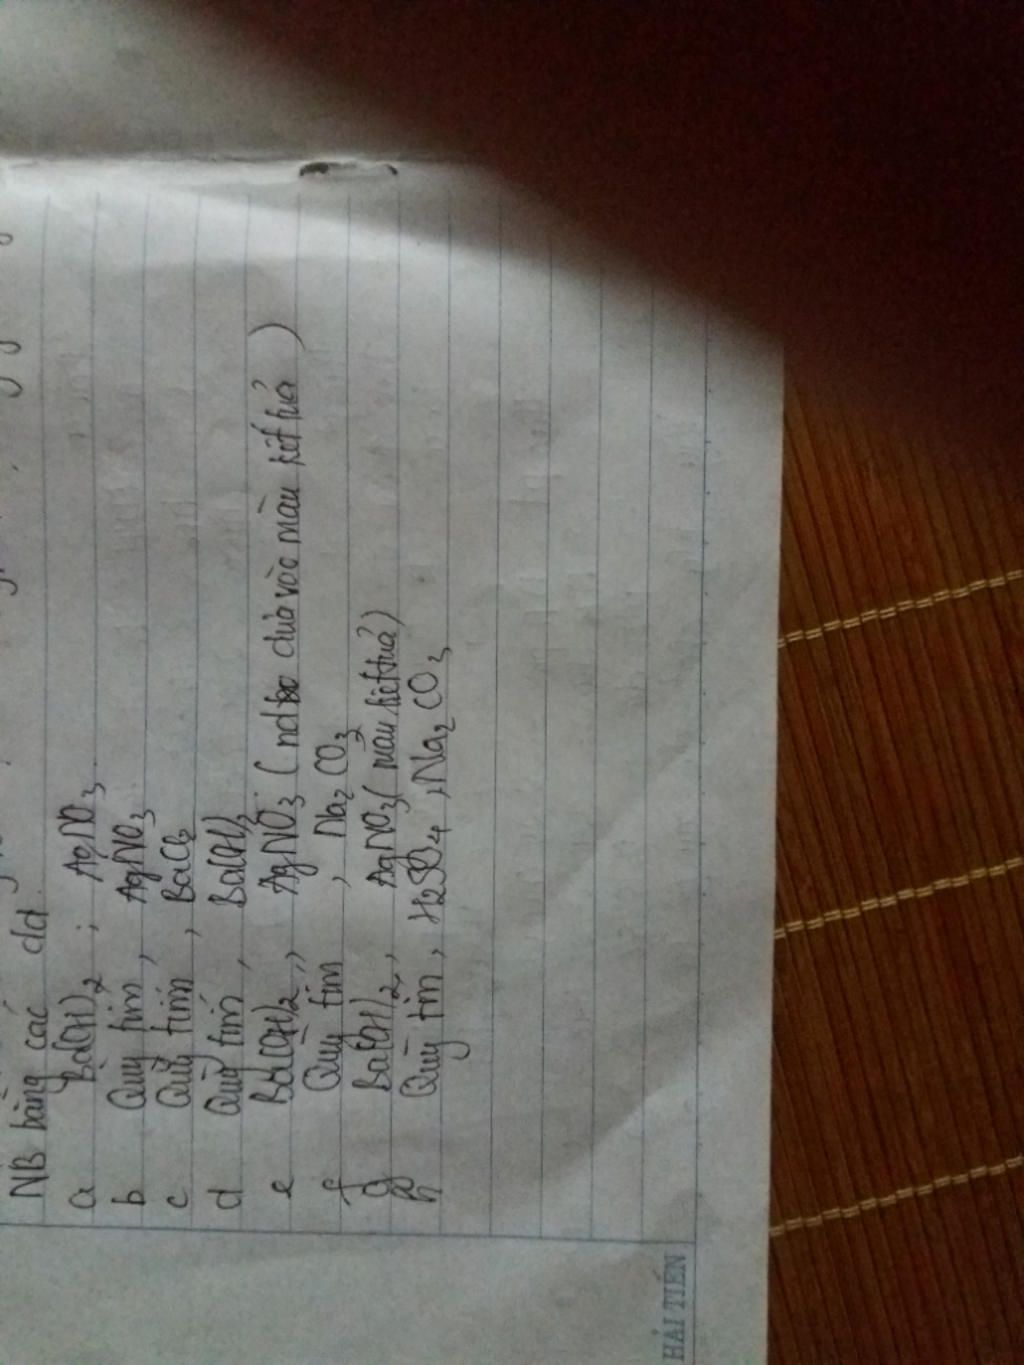 NB bằng các dd
a Ba(OH)2 ; AgNO3
b Quỳ tím, AgNO3
c Quỳ tím, BaCl2
d Quỳ tím, Ba(OH)2
e Ba(OH)2, AgNO3 ( dựa vào màu kết tủa )
f Quỳ tím , Na2CO3
g Ba(OH)2, AgNO3 ( màu kết tủa)
h Quỳ tím, H2SO4, Na2CO3
HẢI TIẾN